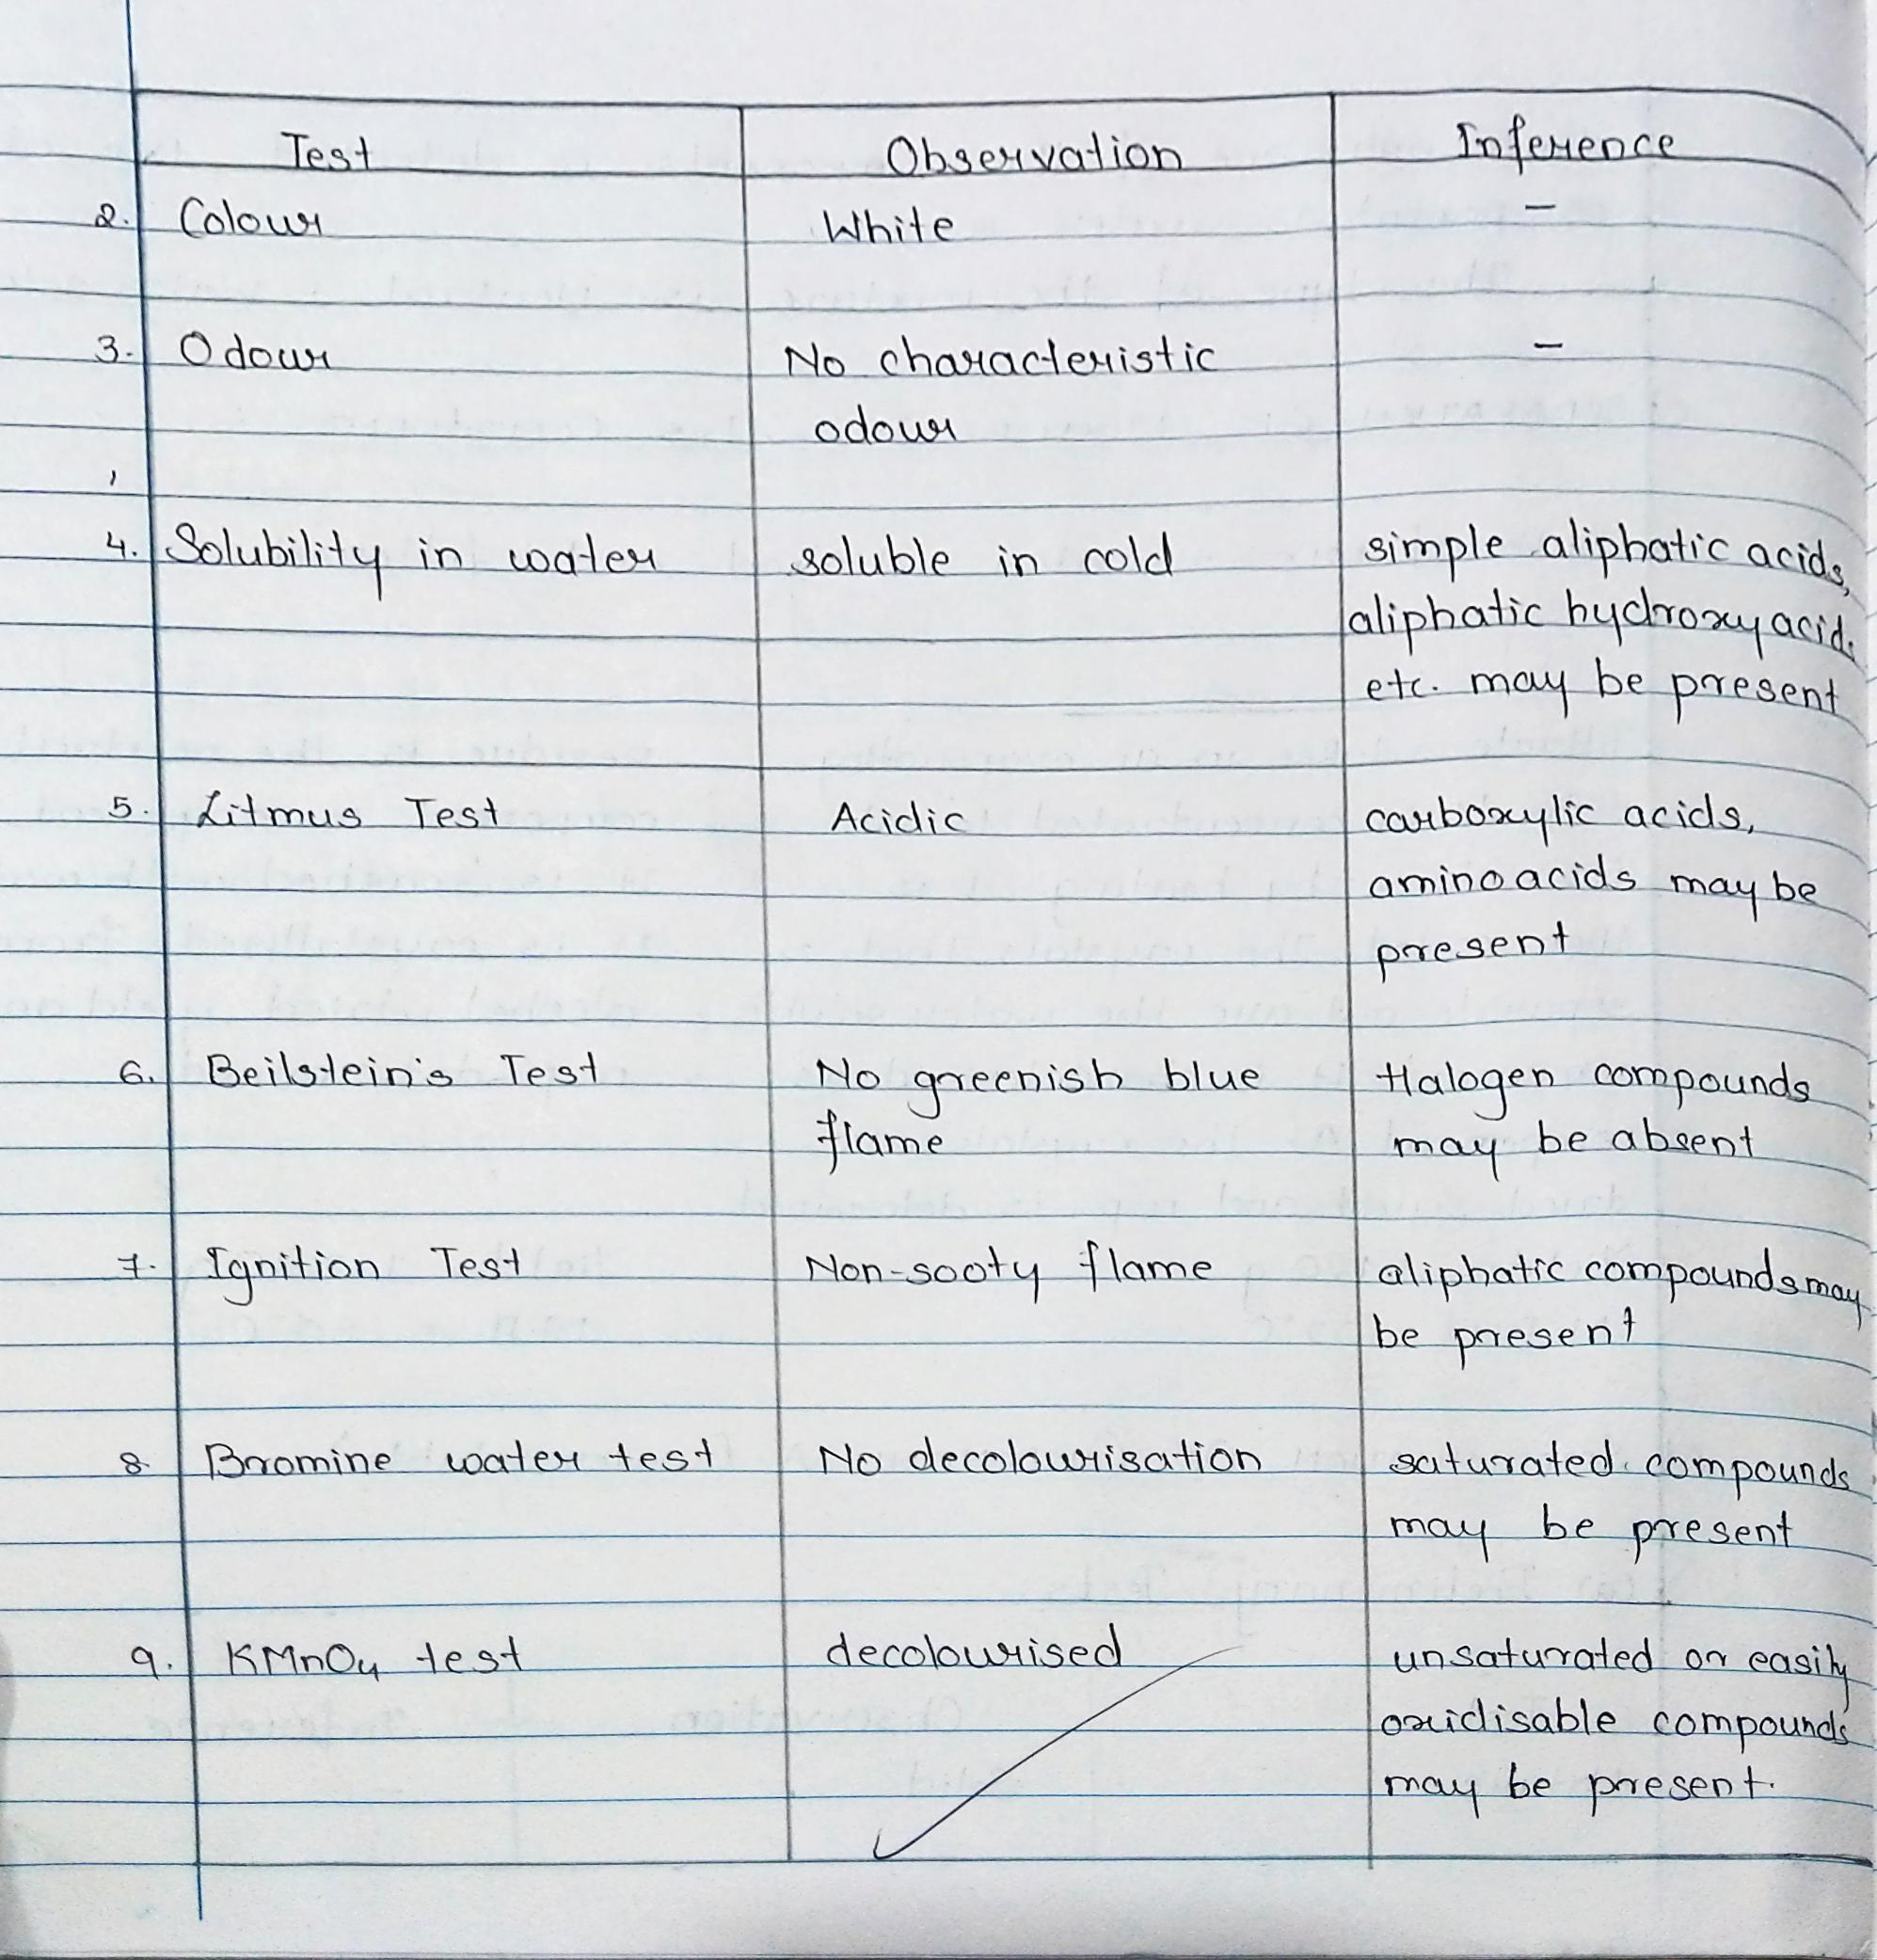 Test Observation Inference
2. Colour White –
3. Odour No characteristic –
odour
4. Solubility in water soluble in cold simple aliphatic acids,
aliphatic hydroxy acid.
etc. may be present
5. Litmus Test Acidic carboxylic acids,
amino acids may be
present
6. Beilstein's Test No greenish blue Halogen compounds
flame may be absent
7. Ignition Test Non-sooty flame aliphatic compounds may
be present
8. Bromine water test No decolourisation saturated compounds
may be present
9. KMnO4 test decolourised unsaturated or easily
oxidisable compounds
may be present.